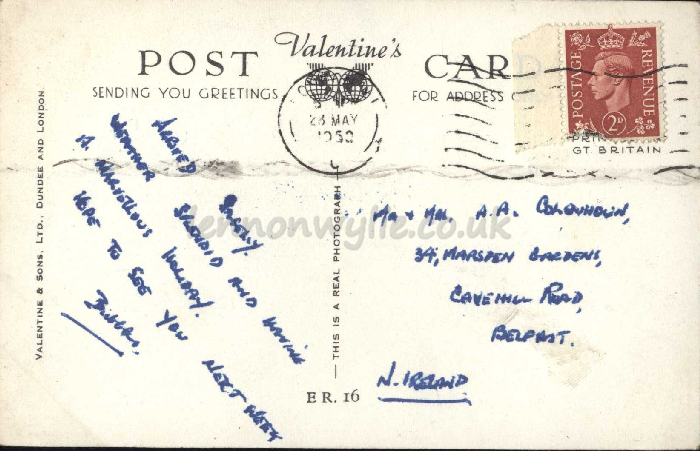 Valentine's
POST CARD
SENDING YOU GREETINGS
FOR ADDRESS
28 MAY
POSTAGE REVENUE
2D
GT. BRITAIN
VALENTINE & SONS, LTD., DUNDEE AND LONDON
THIS IS A REAL PHOTOGRAPH
ARRIVED SAFELY.
WEATHER SPLENDID AND HAVING
A MARVELLOUS HOLIDAY.
HOPE TO SEE YOU NEXT WEEK
MR & MRS. A.A. COLQUHOUN,
34, MARSDEN GARDENS,
CAVEHILL ROAD,
BELFAST.
N. IRELAND
E R. 16
lennonwylie.co.uk